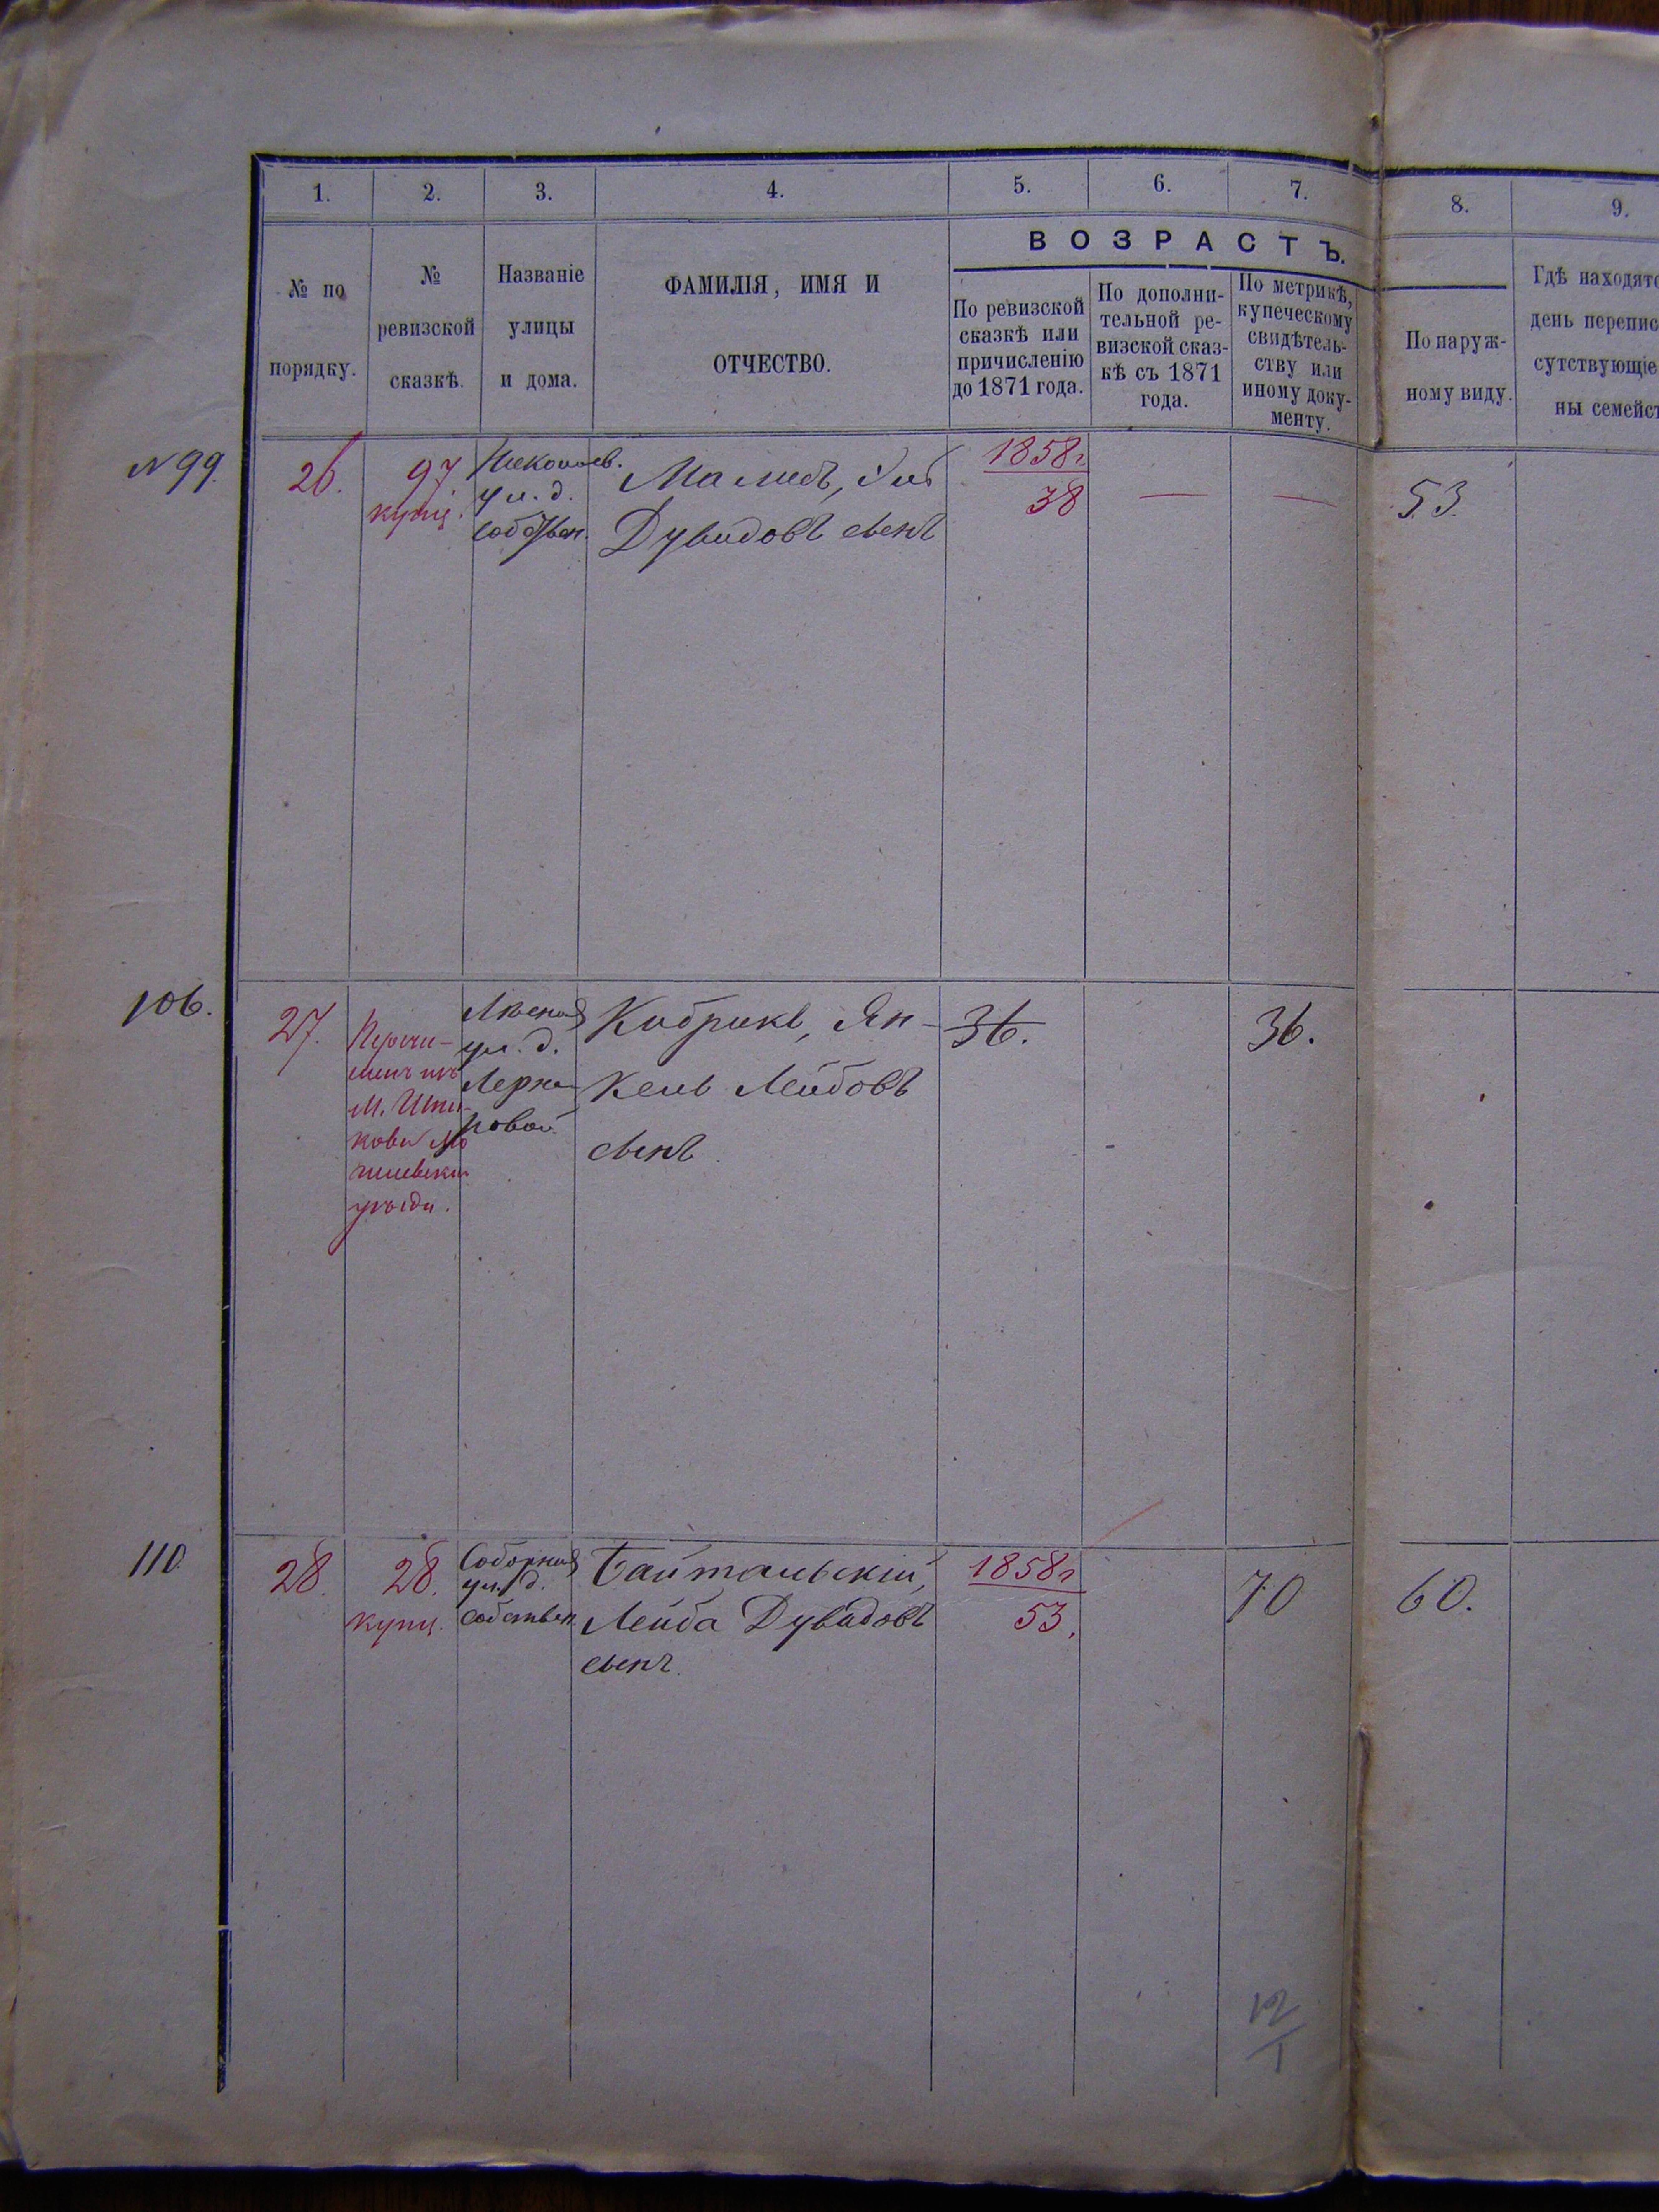 1.
2.
3.
4.
5.
6.
7.
8.
9.
ВОЗРАСТЪ.
№ по
порядку.
№
ревизской
сказкѣ.
Названіе
улицы
и дома.
ФАМИЛІЯ, ИМЯ И
ОТЧЕСТВО.
По ревизской
сказкѣ или
причисленію
до 1871 года.
По дополни-
тельной ре-
визской сказ-
кѣ съ 1871
года.
По метрикѣ,
купеческому
свидѣтель-
ству или
иному доку-
менту.
По наруж-
ному виду.
Гдѣ находятс
день перепис
сутствующіе
ны семейст
№ 99.
26.
97
купц.
Николаев.
ул. д.
собствен.
Дувидовъ сынъ
1858 г.
38
—
—
53.
106.
27.
Перечи-
уѣзда.
ул. д.
Кибрикъ, Ян-
кель Лейбовъ
сынъ
36.
36.
110
28.
28.
купц.
Соборная
ул. д.
собствен.
Байтальскій,
Лейба Дувидовъ
сынъ.
1858 г
53.
70
60.
12
1